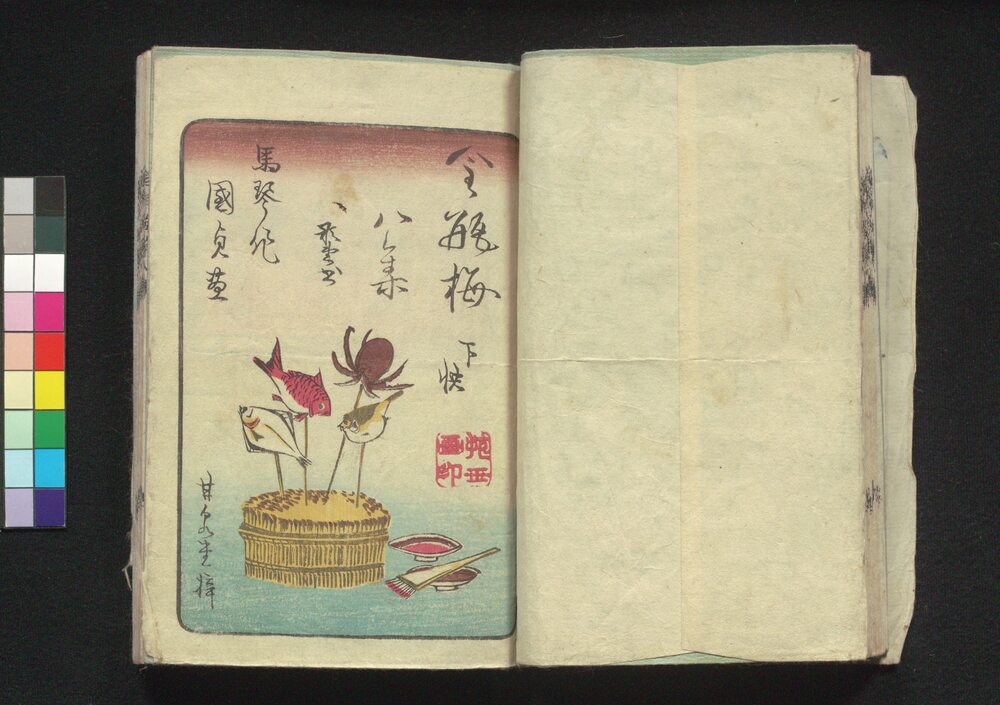 金瓶梅
下帙
八集
馬琴作
國貞画
甘泉堂梓